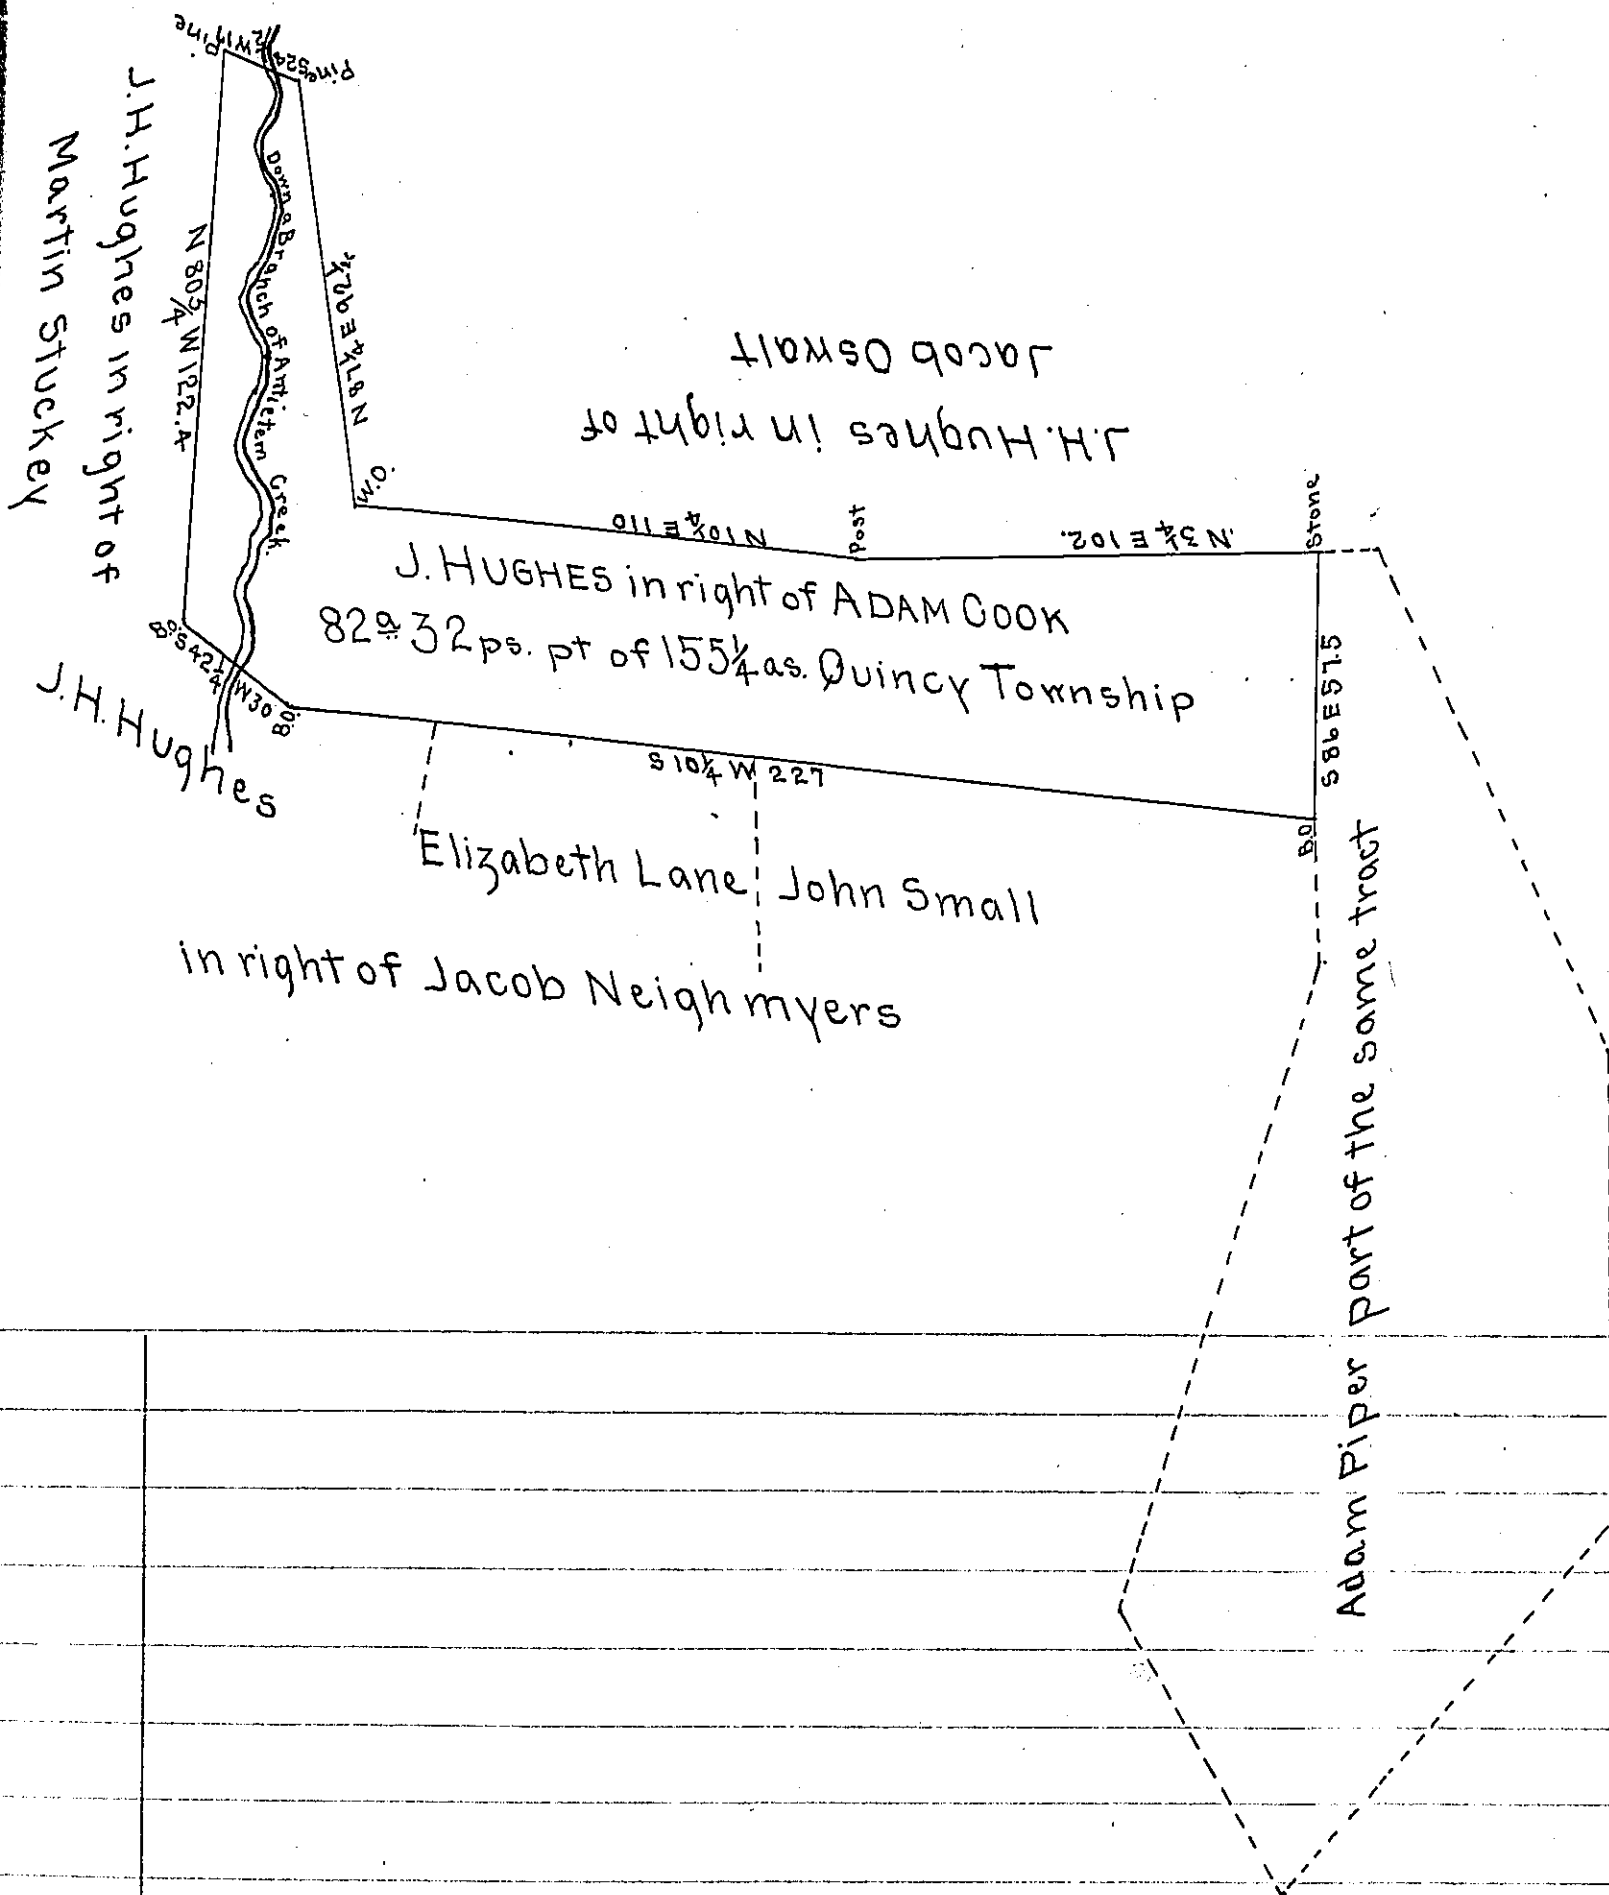 Pine
W17
S24
Pine
J.H. Hughes in right of
Martin Stuckey
N 80 3/4 W 122.4
Down a Branch of Antietem Creek
N 87 1/4 E 92 1/2
W.O.
J.H. Hughes in right of
Jacob Oswalt
N 10 1/4 E 110
Post
N 3 1/4 E 102.
Stone
J. HUGHES in right of ADAM COOK
82a 32 ps. pt of 155 1/4 as. Quincy Township
S 86 E 57.5
B.O.
S 42 1/4 W 30
B.O.
J.H. Hughes
S 10 1/4 W 227
B.O
Elizabeth Lane
John Small
in right of Jacob Neighmyers
Adam Piper part of the same tract